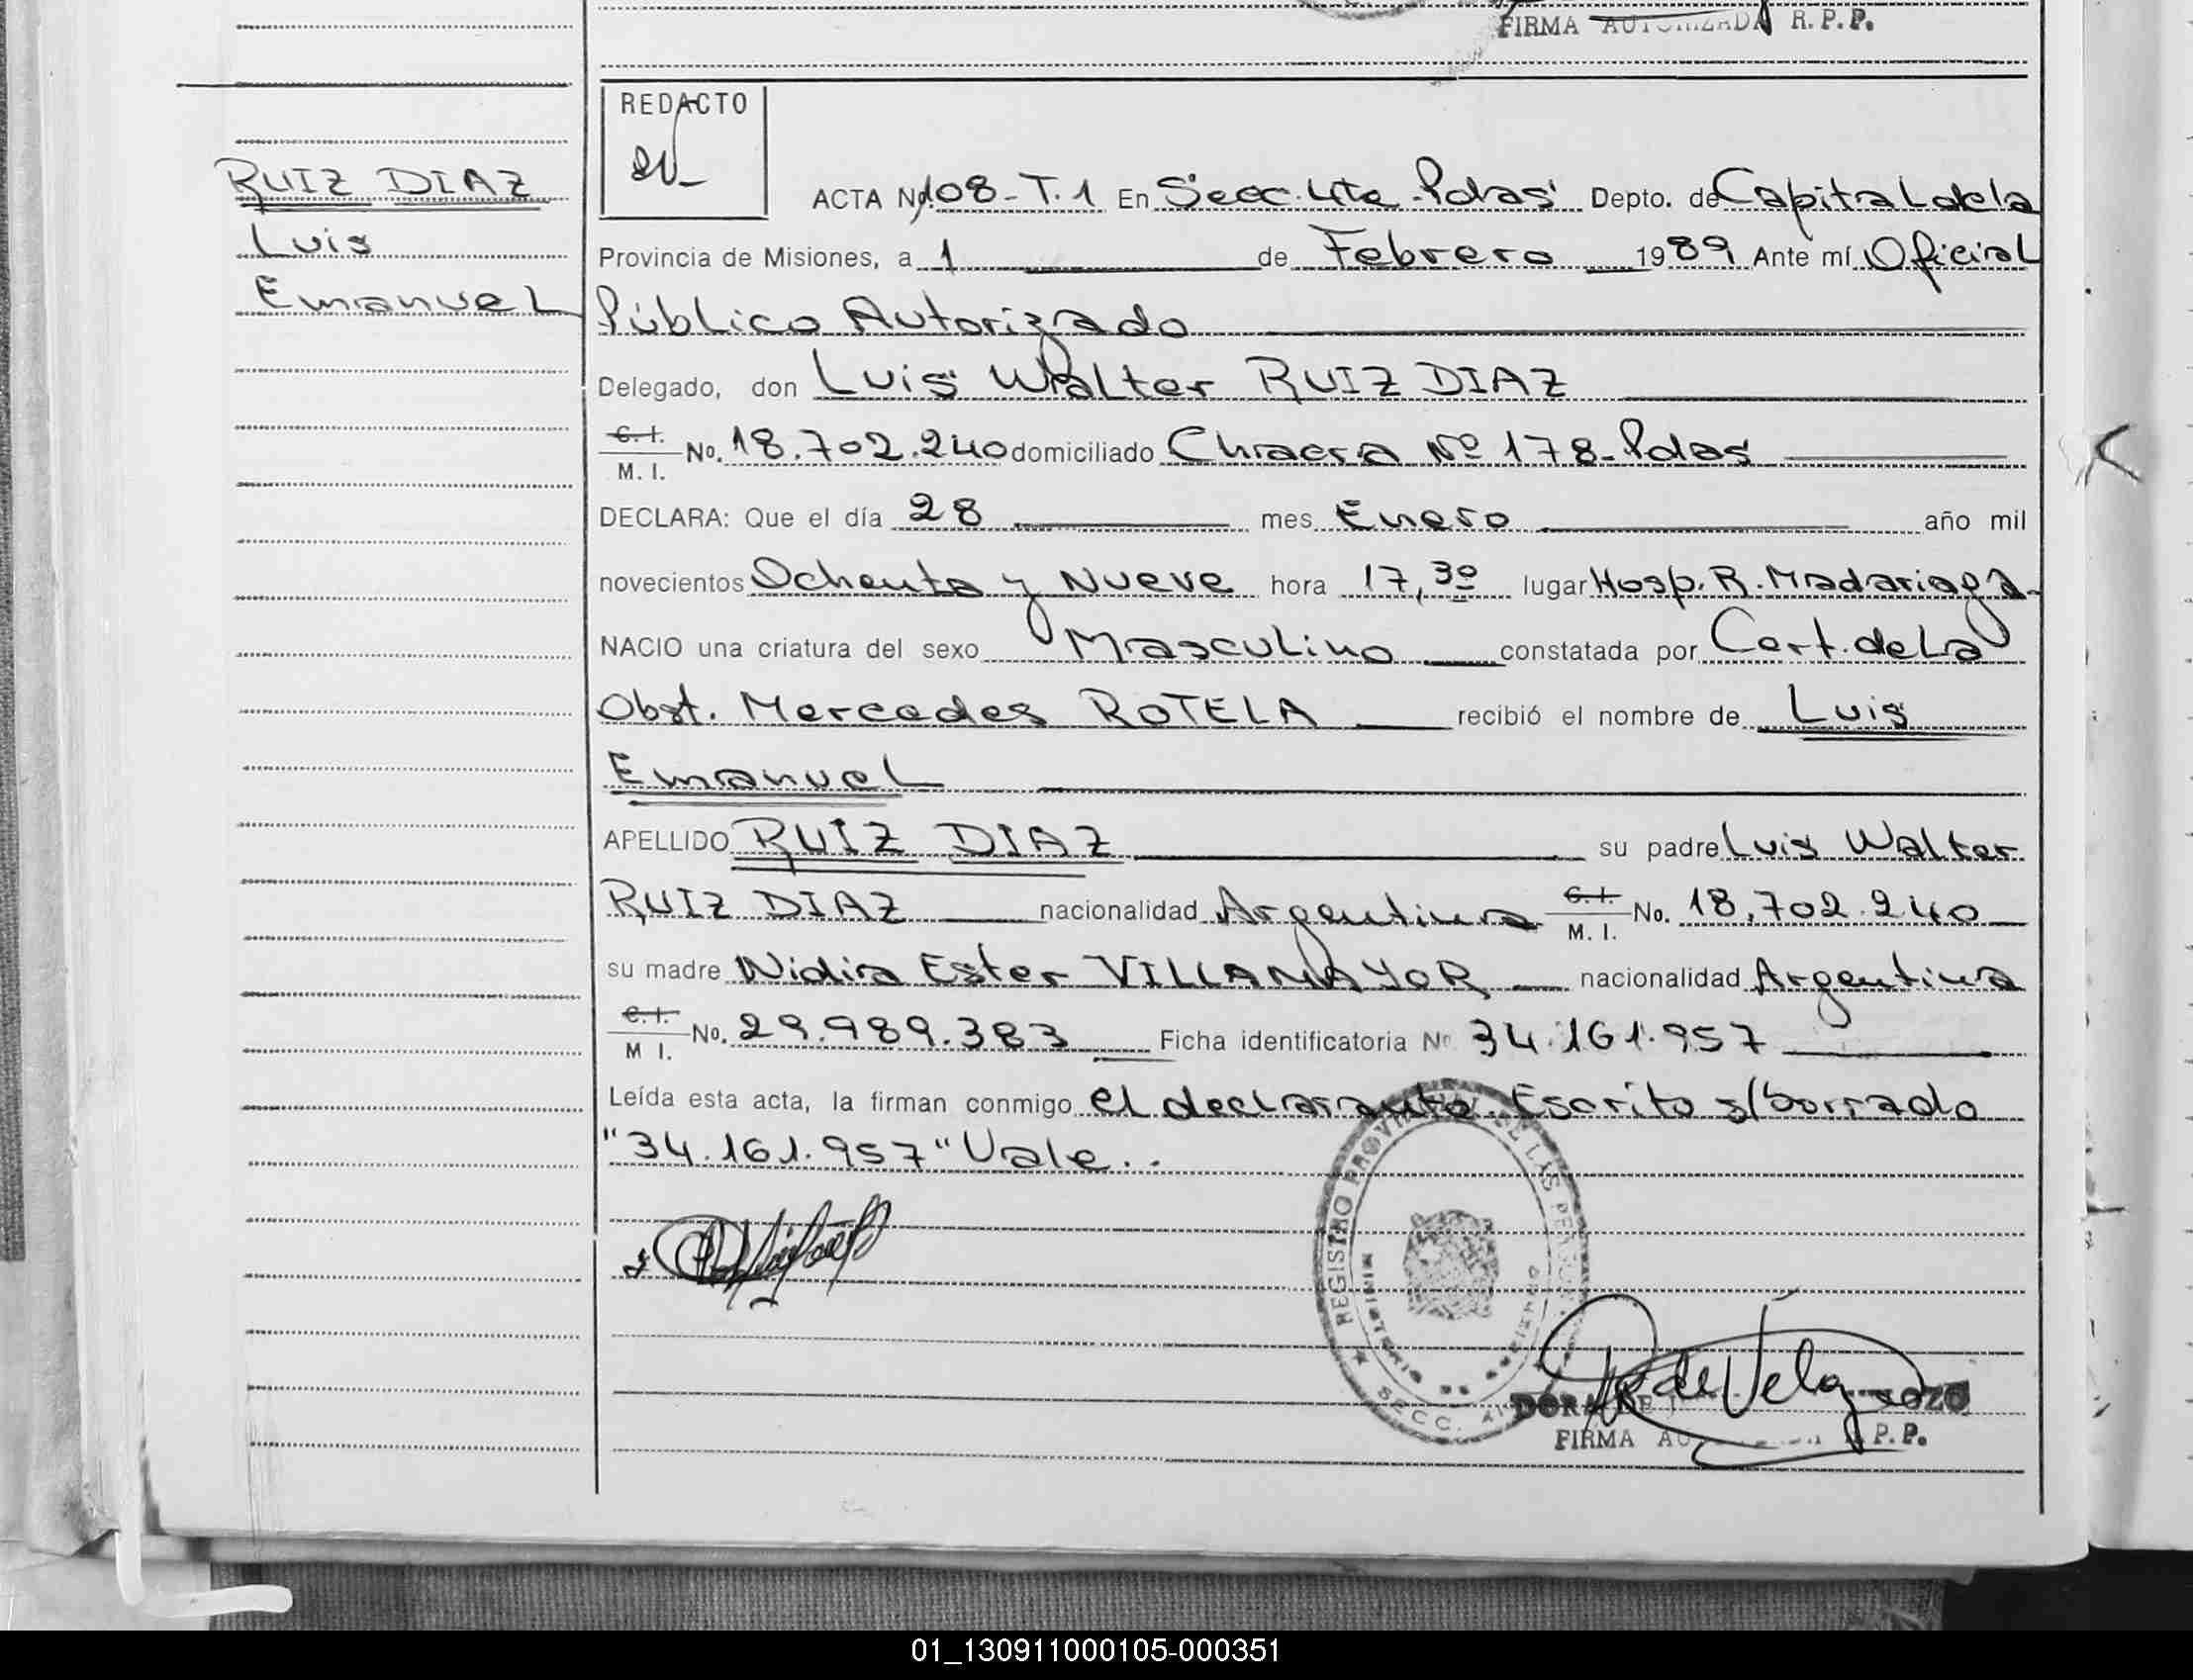 FIRMA AUTORIZADA R. P. P.
REDACTO
RUIZ DIAZ
Luis
Emanuel
ACTA Nº 108-T.1 En Secc. 4ta. Pdas Depto. de Capital de la
Provincia de Misiones, a 1 de Febrero 1989 Ante mí Oficial
Público Autorizado
Delegado, don Luis Walter RUIZ DIAZ
C. I.
M. I. No. 18.702.240 domiciliado Chacra Nº 178-Pdas
DECLARA: Que el día 28 mes Enero año mil
novecientos Ochenta y Nueve hora 17,30 lugar Hosp. R. Madariaga
NACIO una criatura del sexo Masculino constatada por Cert. de La
Obst. Mercedes ROTELA recibió el nombre de Luis
Emanuel
APELLIDO RUIZ DIAZ su padre Luis Walter
RUIZ DIAZ nacionalidad Argentina C. I. M. I. No. 18.702.240
su madre Nidia Ester VILLAMAYOR nacionalidad Argentina
C. I.
M I. No. 29.989.383 Ficha identificatoria Nº 34.161.957
Leída esta acta, la firman conmigo el declarante. Escrito s/borrado
"34.161.957" Vale..
REGISTRO PROVINCIAL DE LAS PERSONAS
MINISTERIO DE GOBIERNO
SECC. 4
DORA DE
FIRMA P. P.
01_130911000105-000351